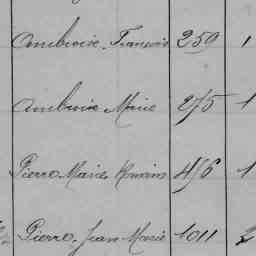 Ambroise François 259 1
Ambroise Marie 275 1
Pierre Marie Romain 456 1
Pierre Jean Marie 1011 2